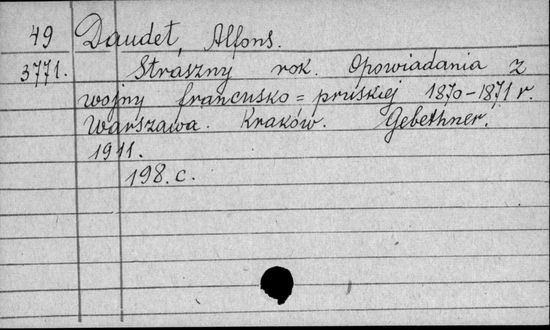 49 Daudet, Alfons.
3771. Straszny rok. Opowiadania z
wojny francusko=pruskiej 1870-1871 r.
Warszawa. Kraków. Gebethner.
1911.
198. c.